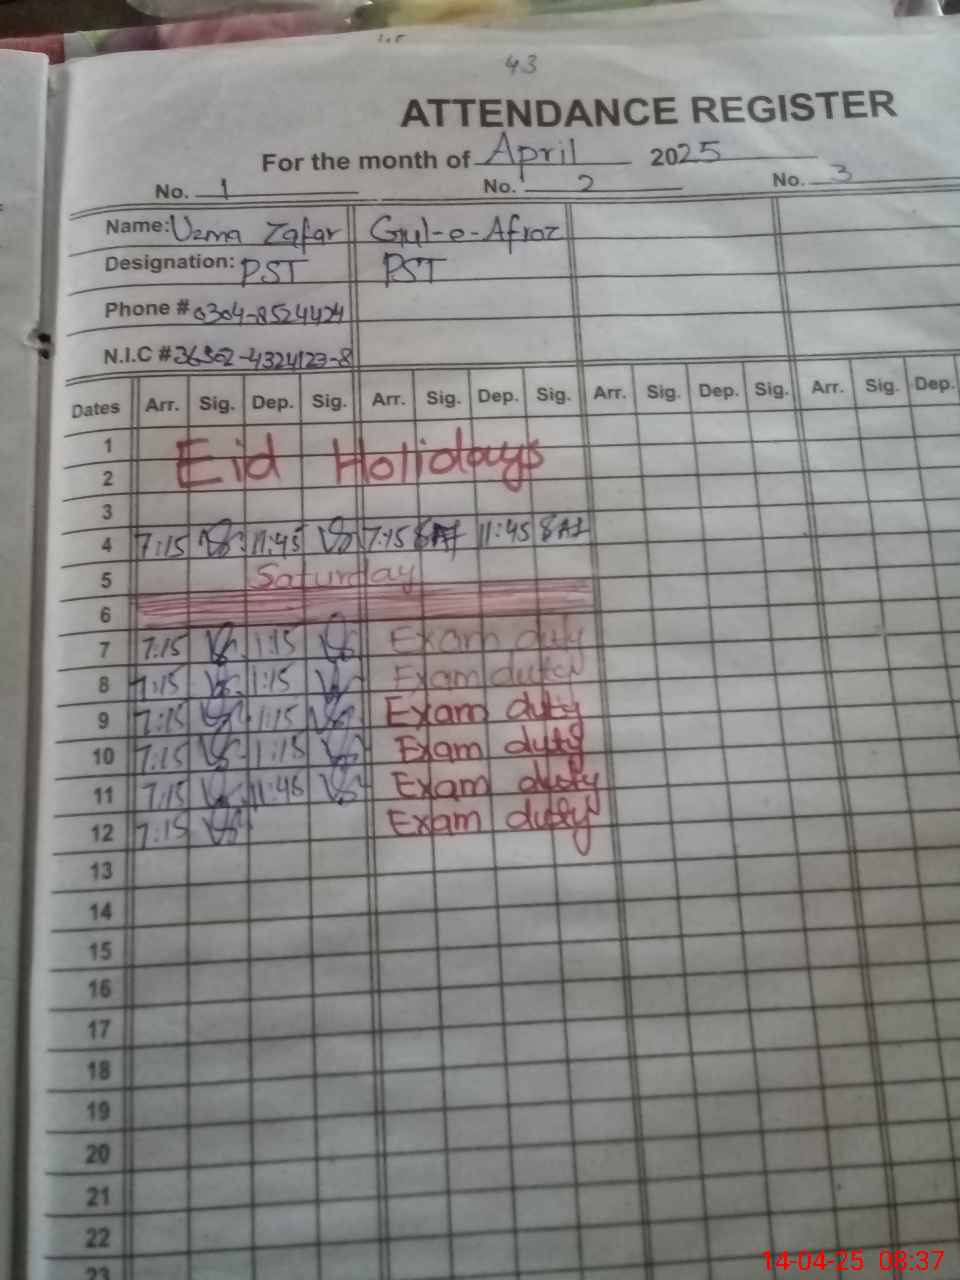 43
ATTENDANCE REGISTER
For the month of April 2025
No. 1 No. 2 No. 3
Name: Uzma Zafar Gul-e-Afroz
Designation: PST PST
Phone # 0304-8524424
N.I.C # 36302-4324123-8
Dates Arr. Sig. Dep. Sig. Arr. Sig. Dep. Sig. Arr. Sig. Dep. Sig. Arr. Sig. Dep.
1
Eid Holidays
2
3
4 7:15 11:45 7:15 SAF 11:45 SAF
5 Saturday
6
7 7:15 1:15 Exam duty
8 7:15 1:15 Exam duty
9 7:15 1:15 Exam duty
10 7:15 1:15 Exam duty
11 7:15 11:45 Exam duty
12 7:15 Exam duty
13
14
15
16
17
18
19
20
21
22
23
14-04-25 08:37